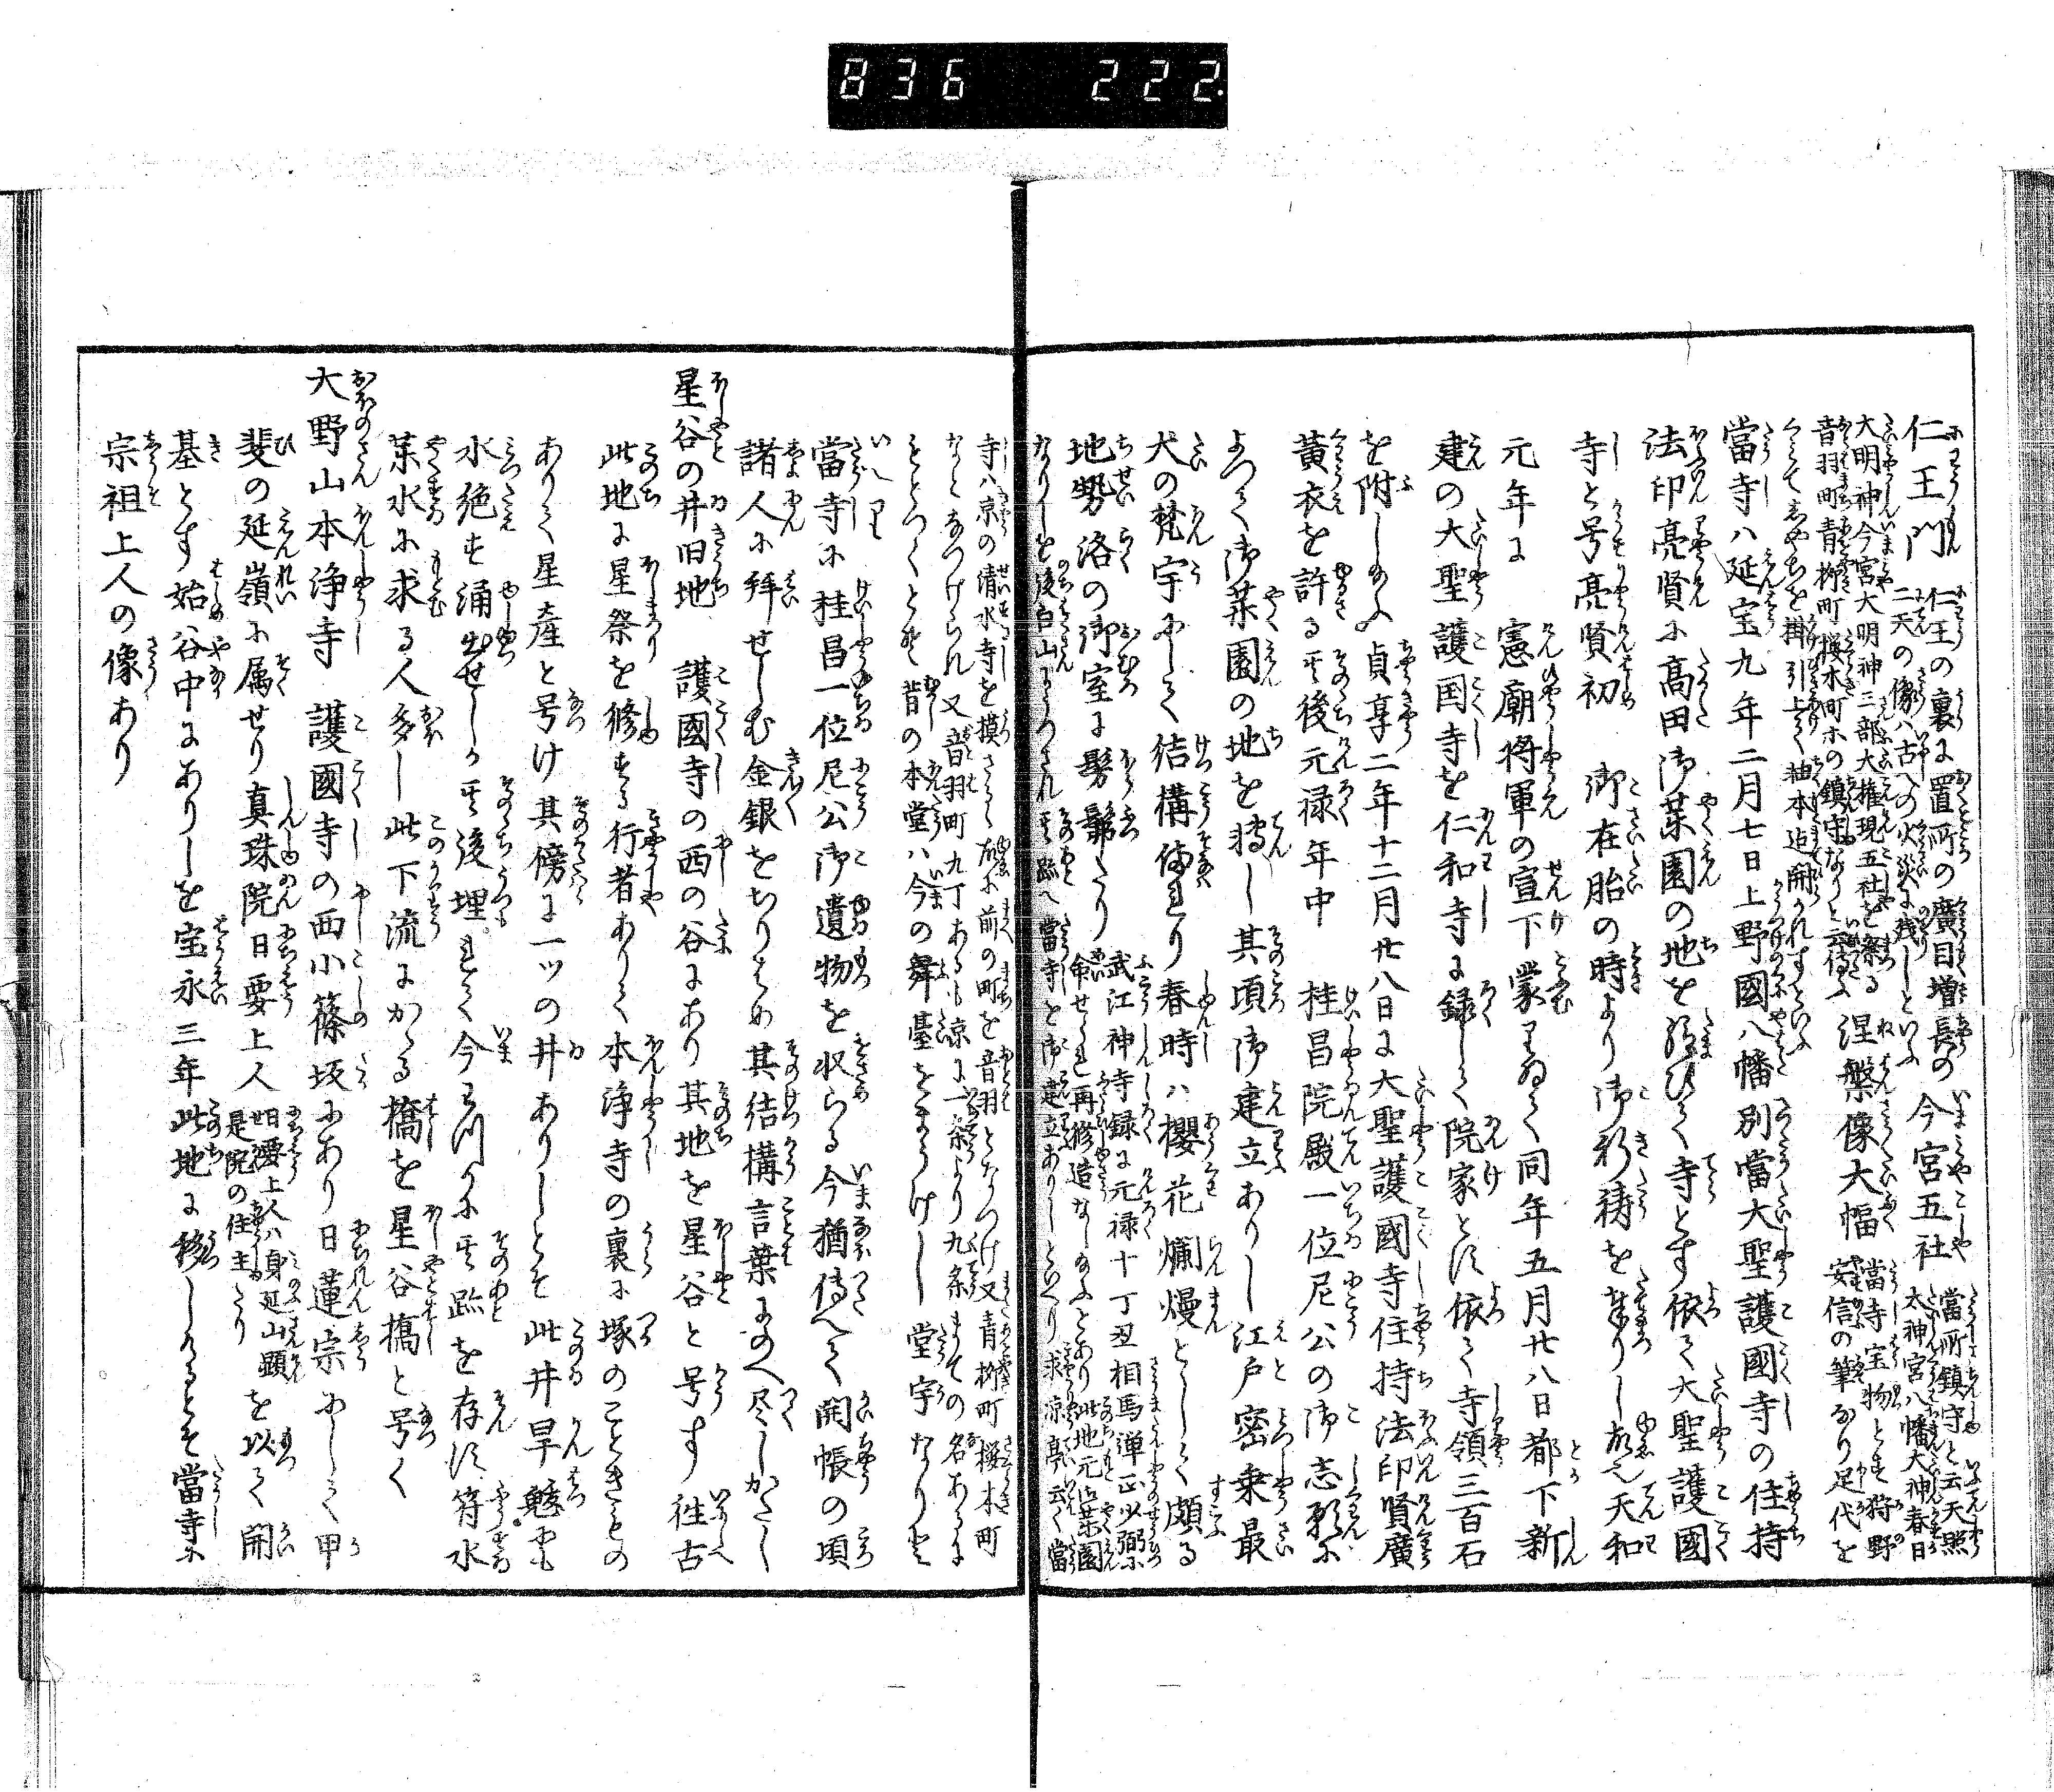 836 222.
仁王門 仁王の裏に置所の廣目増長の二天の像ハ古への火災に残しといふ 今宮五社 當所鎮守と云天照太神宮八幡大神春日
大明神今宮大明神三部大権現五社を祭る音羽町青柳町桜木町ホの鎮守なりと云傳ふ 涅槃像大幅 當寺宝物とす狩野安信の筆なり足代を
くミて高やぐらを掛引上て
當寺ハ延宝九年二月七日上野國八幡別當大聖護國寺の住持
法印亮賢に高田御薬園の地を給ひて寺とす依て大聖護國
寺と号亮賢初 御在胎の時より御祈祷を奉りし故天和
元年に 憲廟将軍の宣下蒙りゐて同年五月廿八日都下新
建の大聖護国寺を仁和寺に録して院家とに依て寺領三百石
を附しゐふ貞享二年十二月廿八日に大聖護國寺住持法印賢廣
黄衣を許る其後元禄年中 桂昌院殿一位尼公の御志願に
よつて御薬園の地を轉し其頃御建立ありし江戸密乗最
大の梵宇にして結構備れり春時ハ櫻花爛熳として頗る
地勢洛の御室に髣髴たり 武江神寺録に元禄十丁丑相馬弾正少弼に命せられ再修造なし給ふとあり此地元御薬園
なりしを後白山にうつされ其跡へ當寺と御建立ありしといへり求凉亭云く當
寺ハ京の清水寺を摸さるゝ故に前の町を音羽となつけ又青柳町櫻木町
なとなつけられ又音羽町九丁あるも凉に一条より九条まての名あるに
もとつくとそ昔の本堂ハ今の舞臺をまうけし堂宇なりと
いへり
當寺に桂昌一位尼公御遺物を収らる今猶傳へて開帳の頃
諸人に拝せしむ金銀をちりはめ其結構言葉にのへ尽しかたし
星谷の井旧地 護國寺の西の谷にあり其地を星谷と号す往古
此地に星祭を修する行者ありて本浄寺の裏に塚のこときもの
ありて星産と号け其傍に一ツの井ありしとそ此井旱魃にも
水絶す涌出せしか其後埋れて今わつかに其跡を存に符水
薬水に求る人多し此下流にかゝる橋を星谷橋と号く
大野山本浄寺 護國寺の西小篠坂にあり日蓮宗にして甲
斐の延嶺に属せり真珠院日要上人 日要上人ハ身延山顕是院の住主たり を以て開
基とす始谷中にありしを宝永三年此地に移しけるとそ當寺に
宗祖上人の像あり